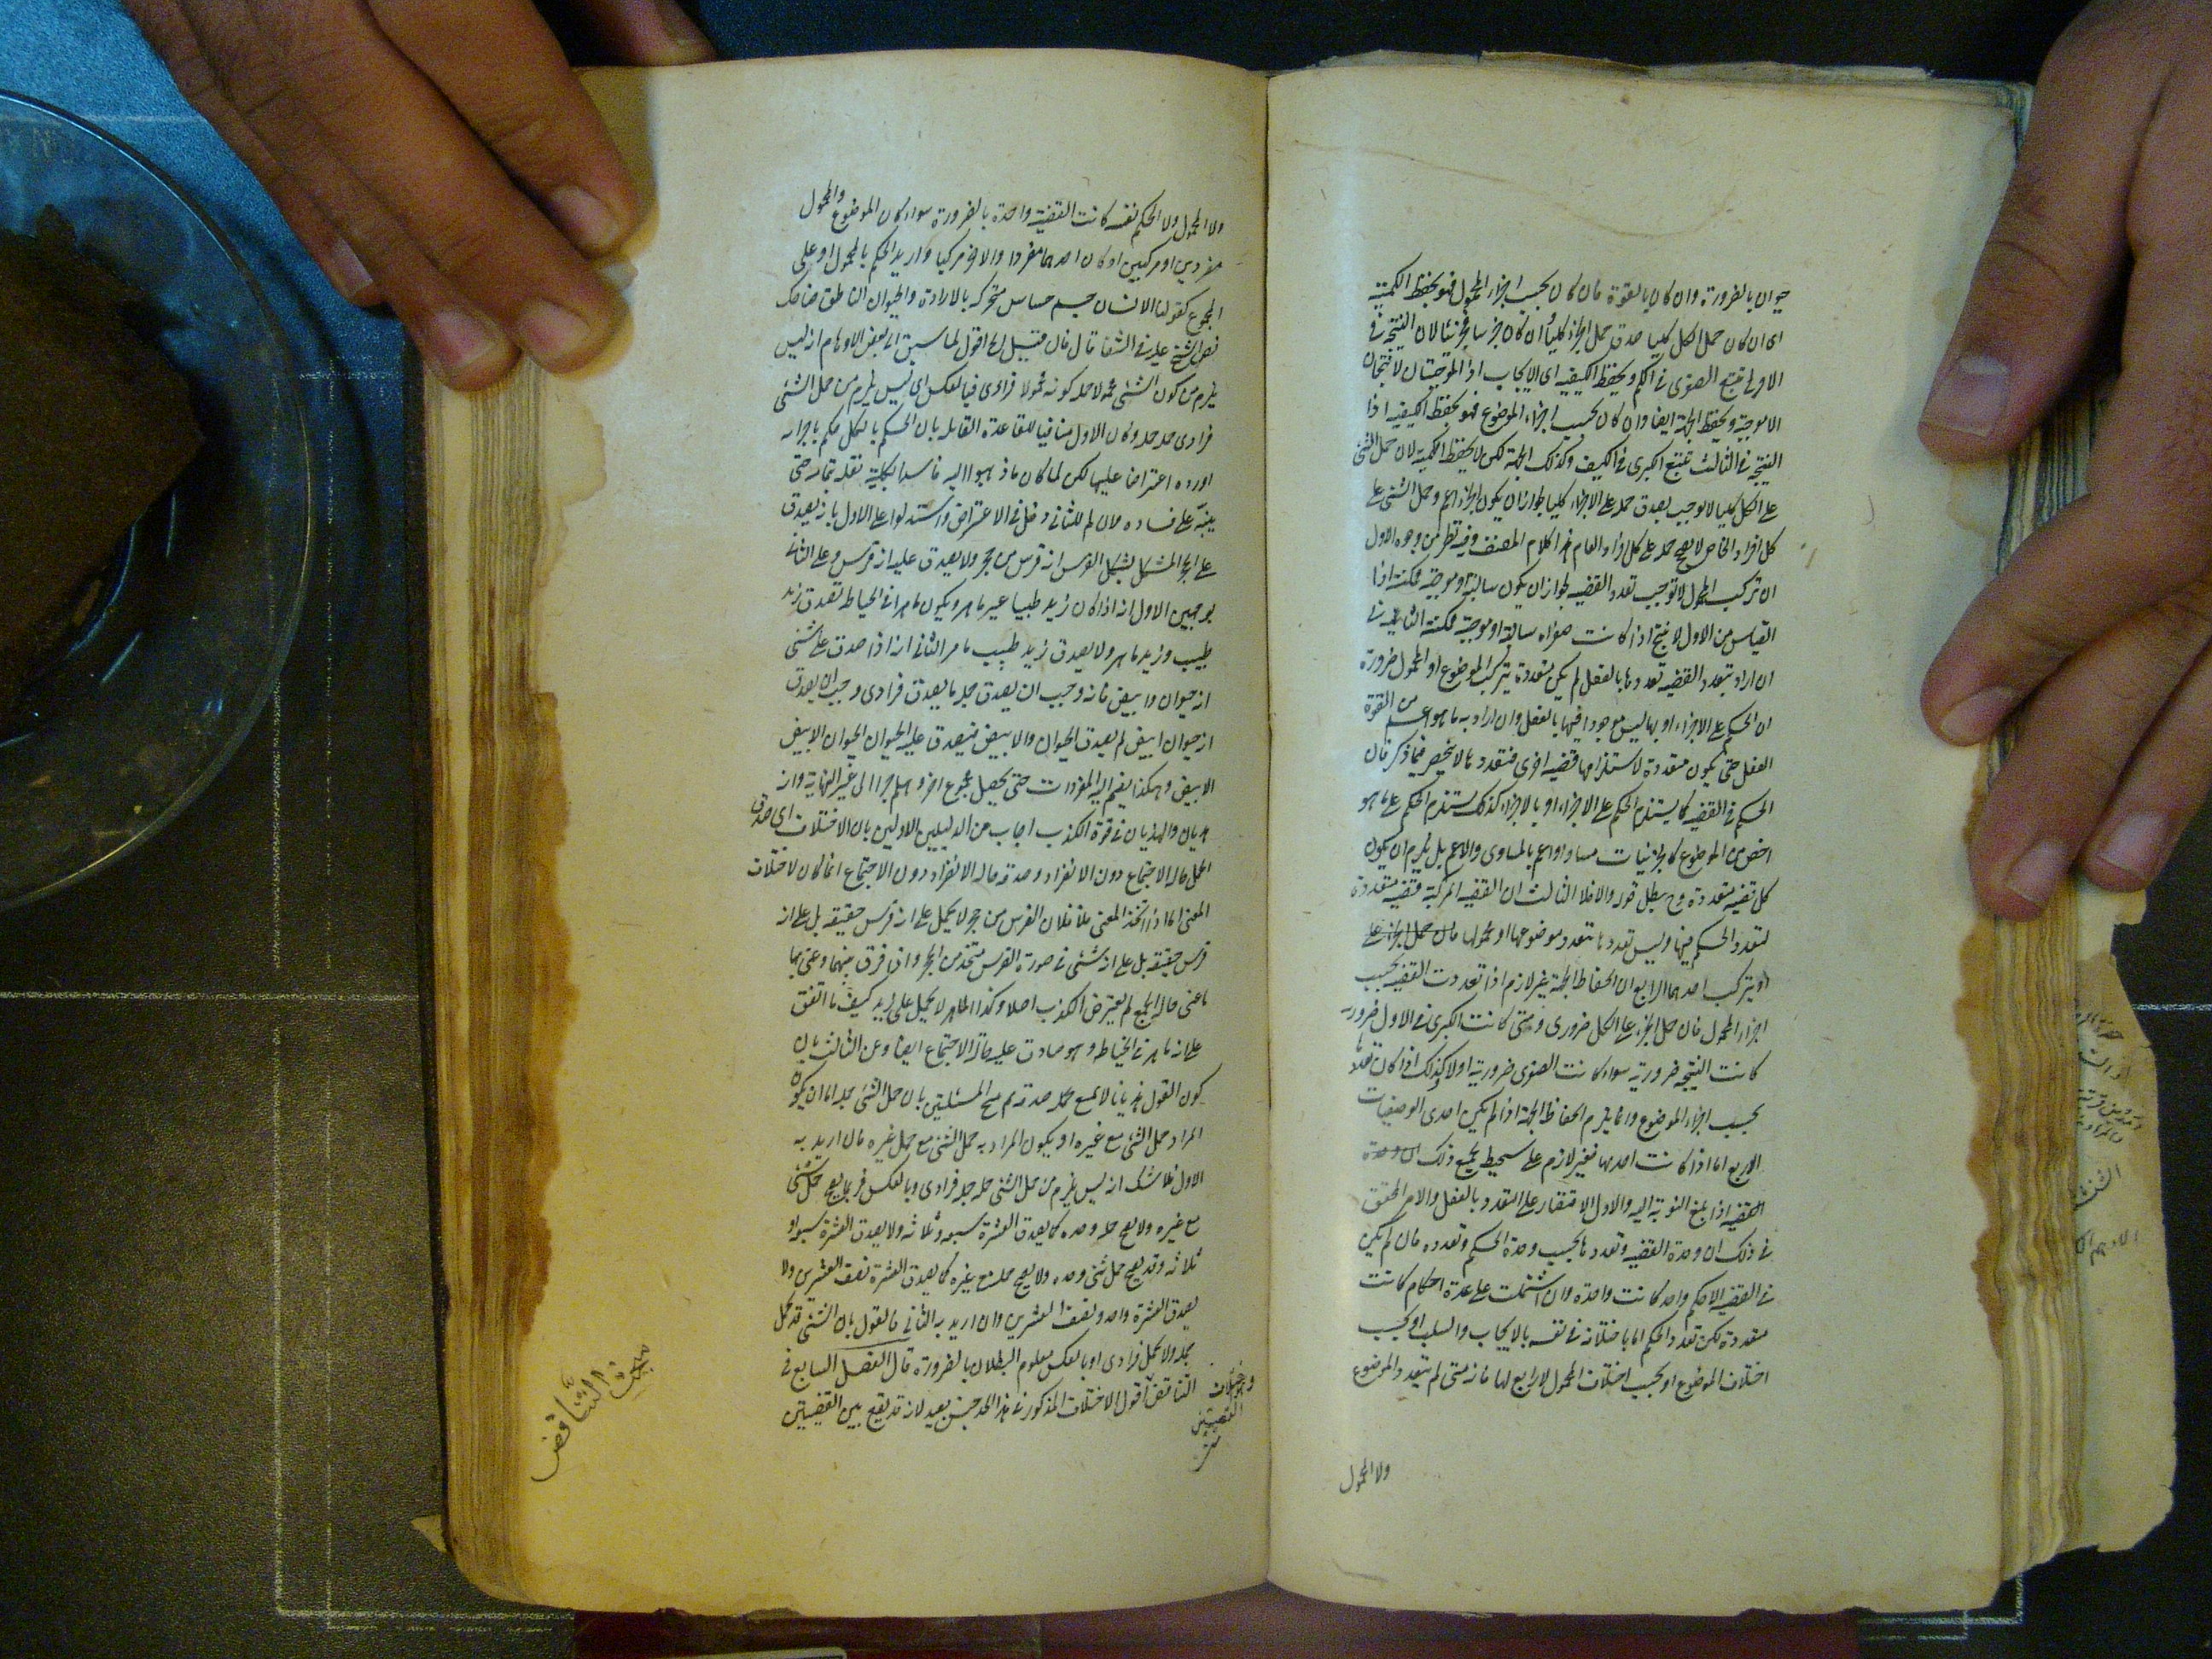 حيوان بالضرورة وان كان بالقوة فان كان بحسب اجزاء المحمول فهو يحفظ الكمية
اى ان كان حمل الكل كليا صدق حمل الجزء كليا وان كان جزئيا فجزئيا لان النتيجة فى
الاولى تتبع الصغرى فى الكم ويحفظ الكيفية اى الايجاب اذ الموجبتان لا تنتجان
الا موجبة ويحفظ الجهة ايضا وان كان بحسب اجزاء الموضوع فهو يحفظ الكيفية اذا
النتيجة فى الثالث تتبع الكبرى فى الكيف وكذلك الجهة لكن لا يحفظ الكمية لان حمل الشئ
على الكل كليا لا يوجب صدق حمله على الاجزاء كليا لجواز ان يكون الجزء اعم وحمل الشئ على
كل افراد الخاص لا يصح حمله على كل افراد العام هذا كلام المصنف وفيه نظر من وجوه الاول
ان تركب المحمول لا توجب تعدد القضية لجواز ان يكون سالبة او موجبة ممكنة اذا
القياس من الاول لا ينتج اذا كانت صغراه سالبة او موجبة ممكنة الثانى
ان اراد بتعدد القضية تعددها بالفعل لم يكن متعددة بتركب الموضوع او المحمول ضرورة
ان الحكم على الاجزاء او بها ليس موجودا فيها بالفعل وان اراد به ما هو اعم من القوة
الفعل حتى يكون متعددة لاستلزامها قضية اخرى فتعددها لا ينحصر فيما ذكر فان
الحكم فى القضية كما يستلزم الحكم على الاجزاء او بالاجزاء كذلك يستلزم الحكم على ما هو
اخص من الموضوع كالجزئيات مساو او اعم بالمساوى والاعم بل يلزم ان يكون
كل قضية متعددة وح يبطل قوله والا فلا الثالث ان القضية المركبة قضية متعددة
لتعدد الحكم فيها وليس تعددها بتعدد موضوعها او محمولها فان حمل الجزء على
او بتركب احدهما الرابع ان انحفاظ الجهة غير لازم اذا تعددت القضية بحسب
اجزاء المحمول فان حمل الجزء على الكل ضرورى ومتى كانت الكبرى فى الاول ضرورية
كانت النتيجة ضرورية سواء كانت الصغرى ضرورية او لا وكذلك اذا كان
بحسب اجزاء الموضوع وانما يلزم انحفاظ الجهة اذا لم يكن احدى الوصفيات
الاربع اما اذا كانت احديها فغير لازم على ستحيط بجميع ذلك
القضية اذا بلغ النوبة اليه والاول الاقتصار على التعدد بالفعل والامر المحقق
فى ذلك ان وحدة القضية وتعددها بحسب وحدة الحكم وتعدده فان لم يكن
فى القضية الا حكم واحد كانت واحدة وان اشتملت على عدة احكام كانت
متعددة لكن تعدد الحكم اما باختلافه فى نفسه بالايجاب والسلب او بحسب
اختلاف الموضوع او بحسب اختلاف المحمول لا رابع لها فانه متى لم يتعدد الموضوع
ولا المحمول
ولا المحمول ولا الحكم نفسه كانت القضية واحدة بالضرورة سواء كان الموضوع والمحمول
مفردين او مركبين او كان احدهما مفردا والاخر مركبا واريد الحكم بالمحمول او على
المجموع كقولنا الانسان جسم حساس متحرك بالارادة والحيوان الناطق ضاحك
نص الشيخ عليه فى الشفا قال فان قيل اقول لما سبق الى بعض الاوهام انه ليس
يلزم من كون الشئ محمولا جملة كونه محمولا فرادى وبالعكس اى ليس يلزم من حمل الشئ
فرادى حمله جملة وكان الاول منافيا للقاعدة القائلة بان الحكم بالكل حكم باجزائه
اورده اعتراضا عليها لكن لما كان ما ذهبوا اليه فاسدا بالكلية نقله بتمامه حتى
ينبه على فساده وان لم للثانى دخل فى الاعتراض واستدلوا على الاول بانه يصدق
على الحجر المتشكل بشكل الفرس انه فرس من حجر ولا يصدق عليه انه فرس وعلى الثانى
بوجهين الاول انه اذا كان زيد طبيبا غير ماهر ويكون ماهرا فى الخياطة يصدق زيد
طبيب وزيد ماهر ولا يصدق زيد طبيب ماهر الثانى انه اذا صدق على شئ
انه حيوان وابيض فانه وجب ان يصدق جملة ما يصدق فرادى وجب ان يصدق
انه حيوان ابيض لم يصدق الحيوان والابيض فيصدق عليه الحيوان الحيوان الابيض
الابيض وهكذا يضم اليه المفردات حتى يحصل مجموع اخر وهلم جرا الى غير النهاية وانه
هذيان والهذيان فى قوة الكذب اجاب عن الدليلين الاولين بان الاختلاف اى صدق
الحمل حالة الاجتماع دون الانفراد وصدقه حالة الانفراد دون الاجتماع انما كان لاختلاف
المعنى اما اذا اتحد المعنى فلا فلان الفرس من حجر لا يحمل على انه فرس حقيقة بل على انه
فرس حقيقة بل على انه شئ فى صورة الفرس متخذ من الحجر واذا فرق بينهما وعنى بها
ما عنى حالة الجمع لم يعترض الكذب اصلا وكذا الماهر لا يحمل على زيد كيف ما اتفق
على انه ماهر فى الخياطة وهو صادق عليه حالة الاجتماع ايضا وعن الثالث بان
كون القول هذيانا لا يمنع صدقه ثم نقح المسئلتين بان حمل الشئ جملة اما ان يكون
المراد حمل الشئ مع غيره او يكون المراد به حمل الشئ مع حمل غيره فان اريد به
الاول فلا شك انه ليس يلزم من حمل الشئ جملة حمله فرادى وبالعكس فربما يصح حمل شئ
مع غيره ولا يصح حمله وحده كما يصدق العشرة سبعة وثلاثة ولا يصدق العشرة سبعة او
ثلاثة وقد يصح حمل شئ وحده ولا يصح حمله مع غيره كما يصدق العشرة نصف العشرين ولا
يصدق العشرة واحد ونصف العشرين وان اريد به الثانى فالقول بان الشئ قد يحمل
جملة ولا يحمل فرادى او بالعكس معلوم البطلان بالضرورة قال الفصل السابع فى
التناقض اقول الاختلاف المذكور فى هذا الحد جنس بعيد لانه قد يقع بين القضيتين
وهو اختلاف
القضيتين
بحث التناقض